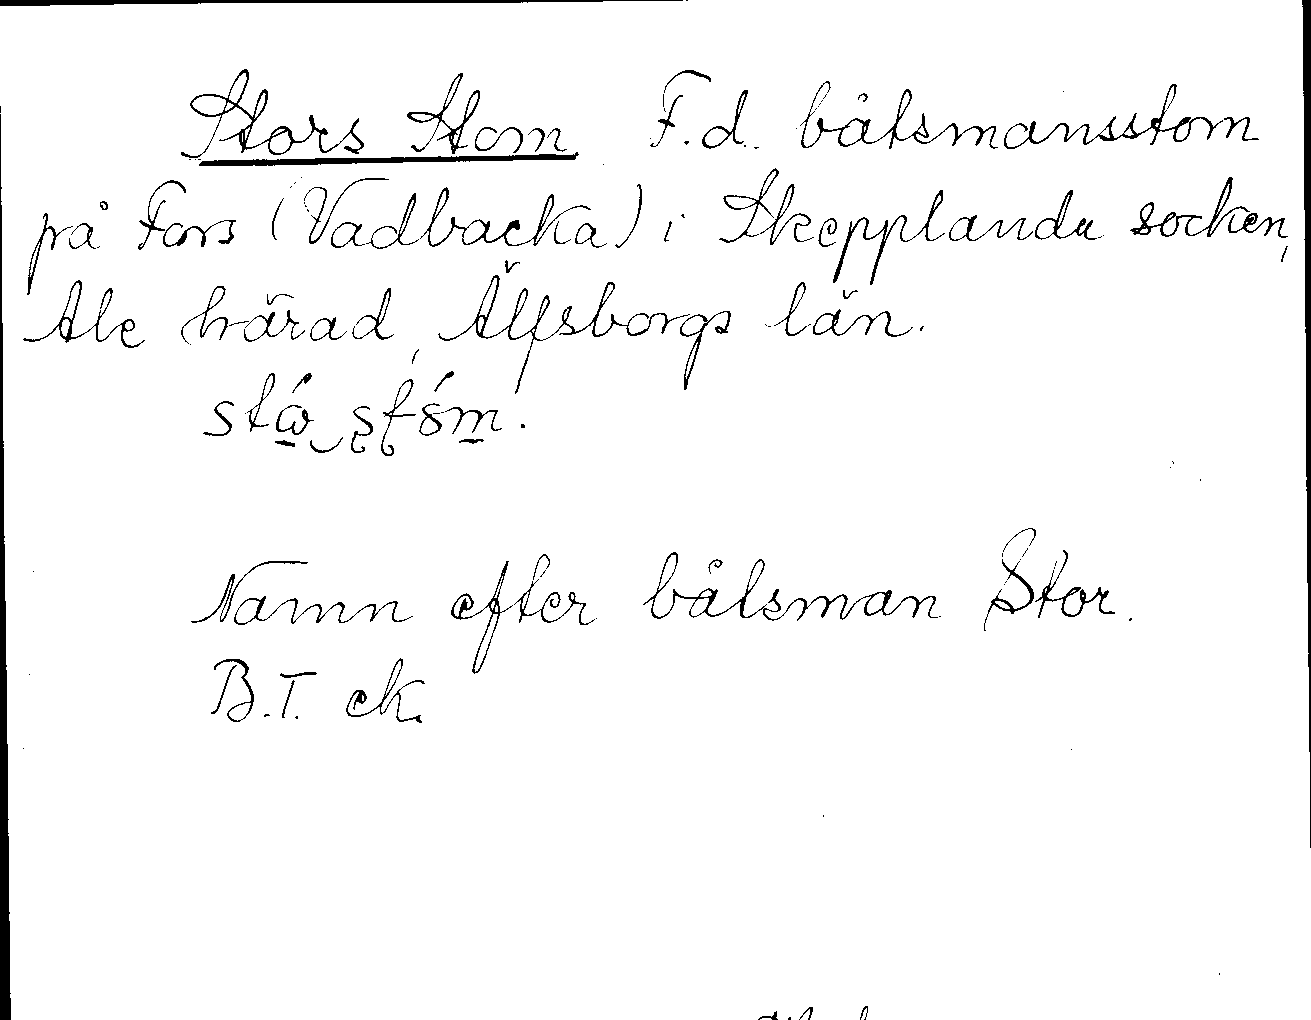 Stors Stom F.d. båtsmansstom
på Fors (Vadbacka) i Skepplanda socken,
Ale härad, Älfsborgs län.
Namn efter båtsman Stor.
B.T. ek.